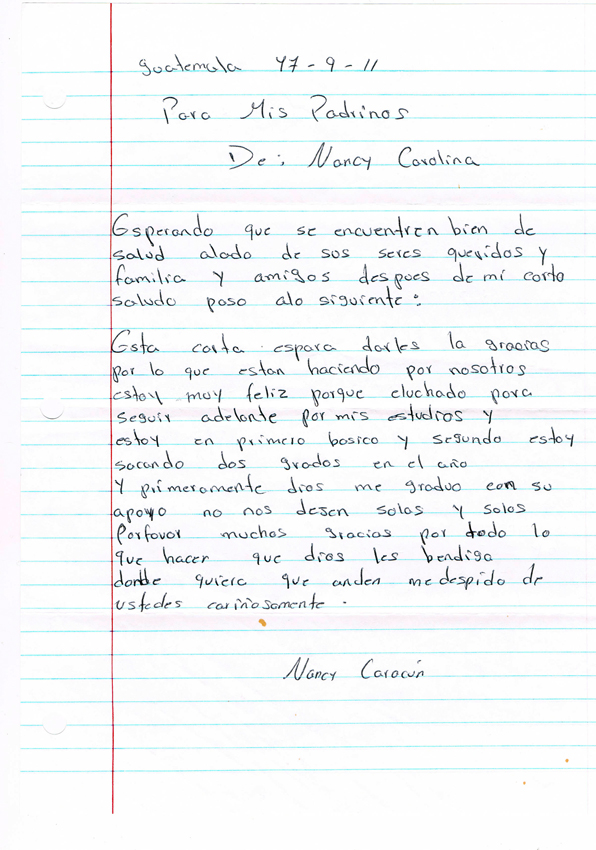 guatemala 17-9-11
Para Mis Padrinos
De: Nancy Carolina
Esperando que se encuentren bien de
salud alado de sus seres queridos y
familia y amigos despues de mi corto
saludo poso alo siguiente:
Esta carta espara darles la gracias
por lo que estan haciendo por nosotros
estoy muy feliz porque eluchado para
seguir adelante por mis estudios y
estoy en primero basico y segundo estoy
sacando dos grados en el año
y primeramente dios me graduo con su
apoyo no nos desen solas y solos
Porfavor muchas gracias por todo lo
que hacen que dios les bendiga
donde quiera que anden me despido de
ustedes cariñosamente.
Nancy